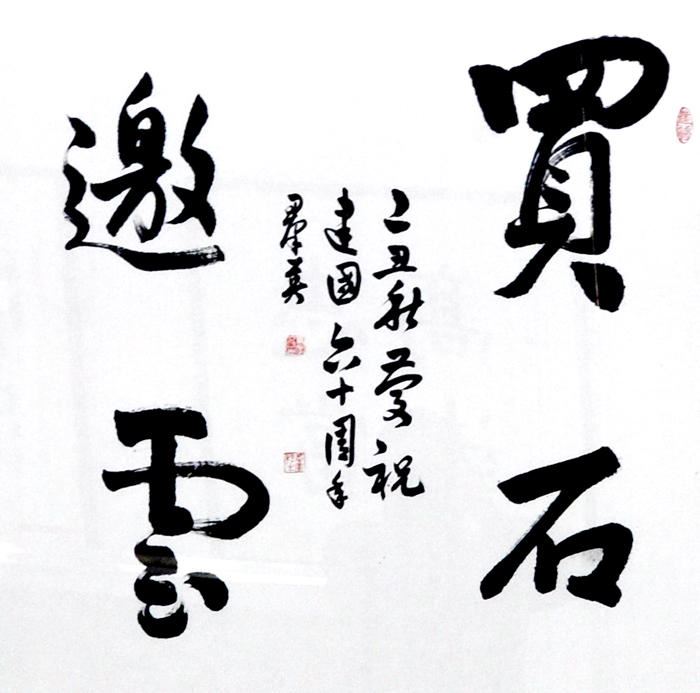 買石
邀雲
己丑秋慶祝
建國六十周年
羣英